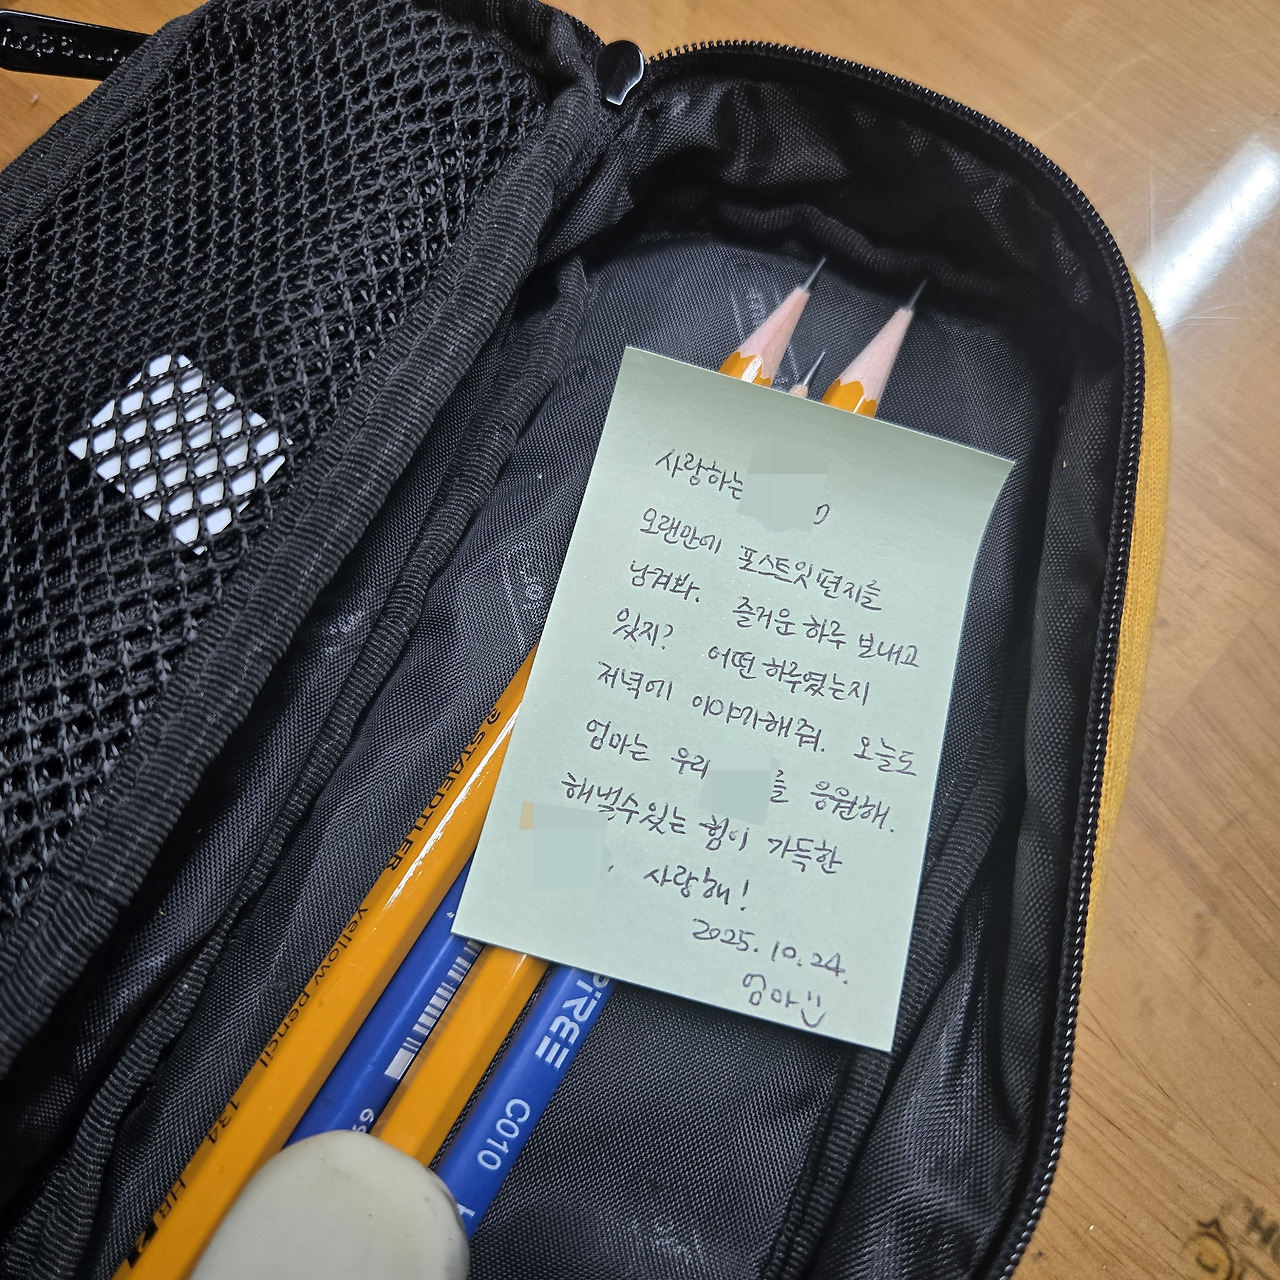 사랑하는
오랜만에 포스트잇 편지를
남겨봐. 즐거운 하루 보내고
있지? 어떤 하루였는지
저녁에 이야기해줘. 오늘도
엄마는 우리 를 응원해.
해낼수있는 힘이 가득한
사랑해!
2025. 10. 24.
엄마
STAEDTLER Yellow Pencil 134 HB 2
C010